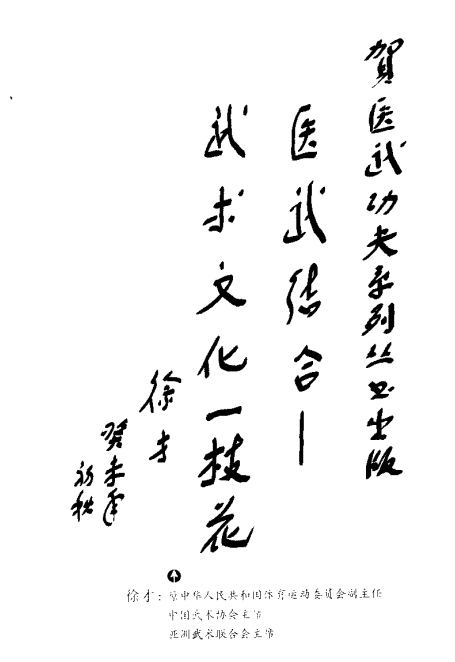 贺医武功夫系列丛书出版
医武结合—
武术文化一枝花
徐才
癸未年
初秋
徐才：原中华人民共和国体育运动委员会副主任
中国武术协会主席
亚洲武术联合会主席